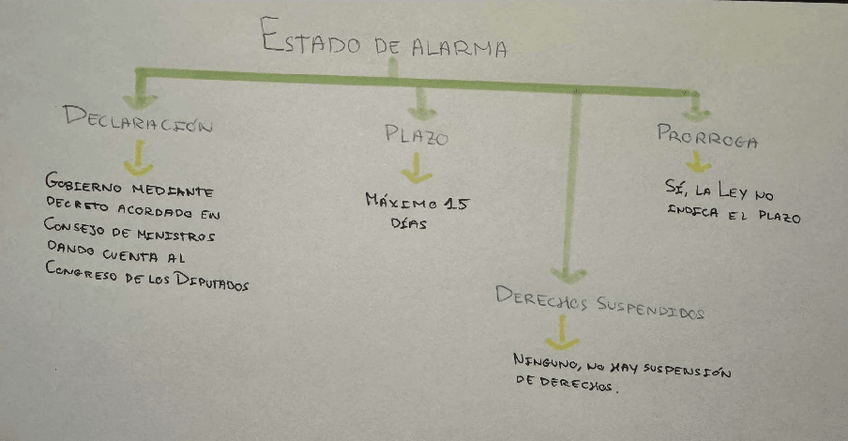 ESTADO DE ALARMA
DECLARACIÓN
GOBIERNO MEDIANTE
DECRETO ACORDADO EN
CONSEJO DE MINISTROS
DANDO CUENTA AL
CONGRESO DE LOS DIPUTADOS
PLAZO
MÁXIMO 15
DÍAS
DERECHOS SUSPENDIDOS
NINGUNO, NO HAY SUSPENSIÓN
DE DERECHOS.
PRORROGA
SÍ, LA LEY NO
INDICA EL PLAZO